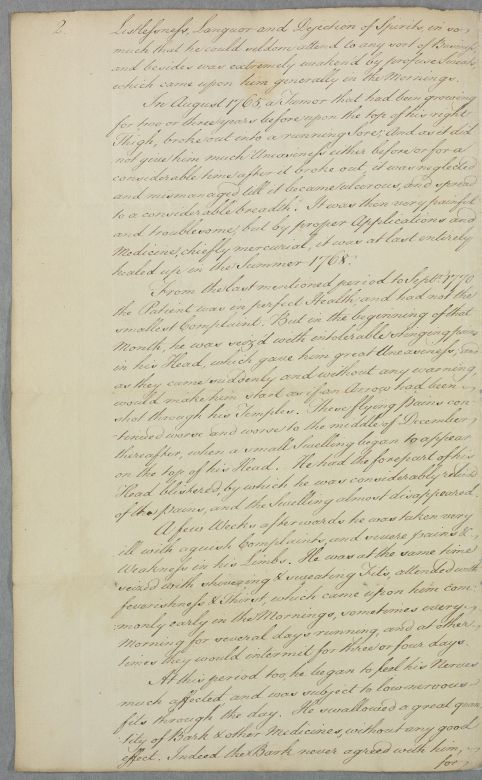 2.
Listlessness, Languor and Dejection of Spirits, in so
much that he could seldom attend to any sort of Business
and besides was extremely weakend by profuse Sweats
which came upon him generally in the Mornings.
In August 1765, a Tumor that had been growing
for two or three years before upon the top of his right
Thigh, broke out into a running Sore; And as it did
not give him much Uneasiness either before or for a
considerable time after it broke out, it was neglected
and mismanaged till it became ulcerous, and spread
to a considerable breadth. It was then very painful
and troublesome; but by proper Applications and
Medicine, chiefly mercurial, it was at last entirely
healed up in the Summer 1768.
From the last mentioned period to Septr. 1770
the Patient was in perfect Health, and had not the
smallest Complaint. But in the beginning of that
Month, he was seiz'd with intolerable stinging pains
in his Head, which gave him great Uneasiness, and
as they came suddenly and without any warning
would make him start as if an Arrow had been
shot through his Temples. These flying pains con-
tinued worse and worse to the middle of December
thereafter, when a small Swelling began to appear
on the top of his Head. He had the forepart of his
Head blistered, by which he was considerably relievd
of the pains, and the Swelling almost disappeared.
A few Weeks afterwards he was taken very
ill with aguish Complaints, and severe pains &
Weakness in his Limbs. He was at the same time
seized with shivering & sweating Fits, attended with
feverishness & Thirst, which came upon him com-
monly early in the Mornings, sometimes every
Morning for several days running, and at other
times they would intermit for three or four days.
At this period too, he began to feel his Nerves
much affected and was subject to low nervous
fits through the day. He swallowed a great quan-
tity of Bark & other Medicines, without any good
effect. Indeed the Bark never agreed with him,
for